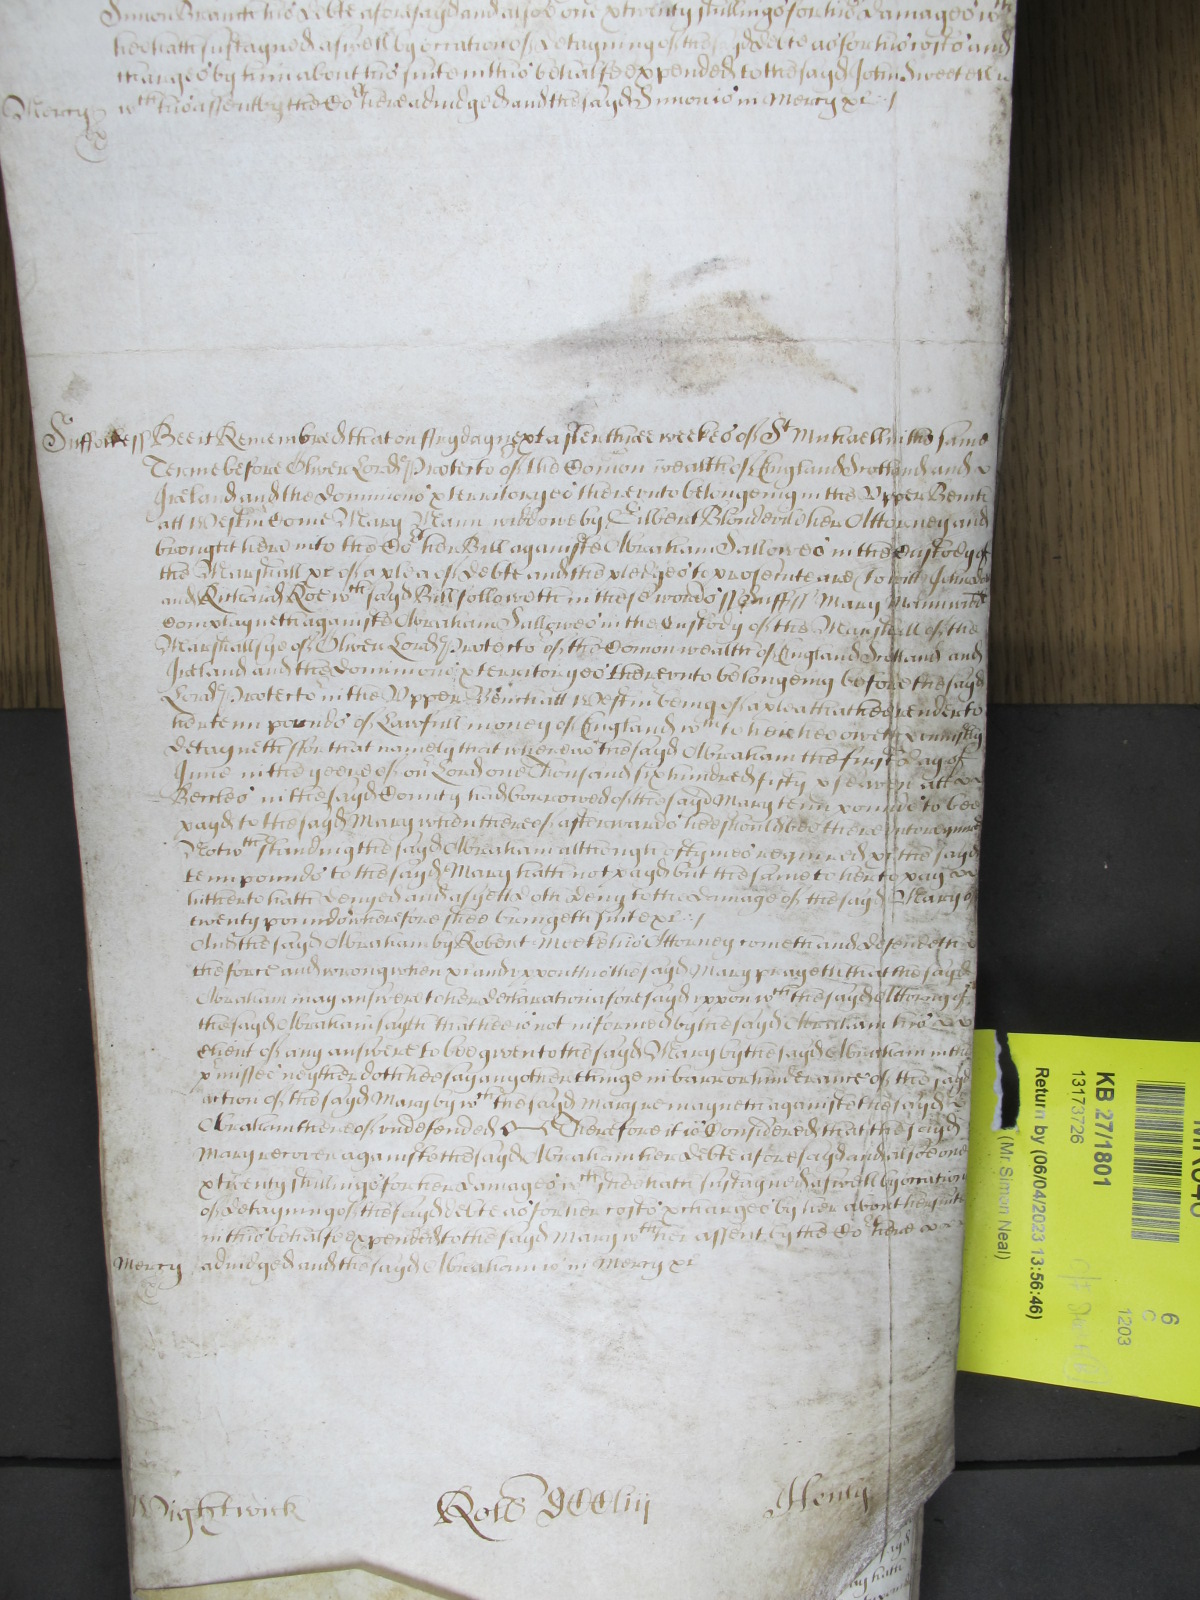 Simon Branch his debte aforesayd and alsoe one & twenty shillings for his damages wch
hee hath susteyned aswell by occation of detayning of the sayd debte as for his costs and
charges by him about his suite in this behalfe expended to the sayd John
wth his assent by the Cort here adiudged and the sayd Simon is in Mercy &c
Mercy
Suffolke ss Bee it Remembred that on fryday next after three weekes of St Michaell in this same
Terme before Oliver Lord Protector of the Comon wealth of England Scotland and
Ireland and the dominions & territoryes thereunto belongeing in the Upper Bench
att Westmr Come Mary Mann widdowe by Gilbert Blondevile her Attorney and
brought here into the Cort her Bill againste Abraham Fallowes in the Custody of
the Marshall &c of a plea of debte and the pledges to prosecute are, to witt, John
and Richard Roe wch sayd Bill followeth in these words ss Suff ss Mary Mann
Complayneth againste Abraham Fallowes in the Custody of the Marshall of the
Marshallsye of Oliver Lord Protector of the Comon wealth of England Scotland and
Ireland and the dominions & territoryes thereunto belongeing before the sayd
Lord Protector in the Upper Bench att Westmr being of a plea that hee render to
her tenn pounds of Lawfull money of England wch to her hee oweth & uniustly
detayneth for that namely that whereas the sayd Abraham the first day of
June in the yeere of our Lord one Thousand six hundred fifty & seaven att
Beccles in the sayd County had borrowed of the sayd Mary tenn pounds to bee
payd to the sayd Mary when thereof afterwards hee should bee thereunto required
Notwthstanding the sayd Abraham although oftymes required &c the sayd
tenn pounds to the sayd Mary hath not payd but the same to her to pay
hitherto hath denyed and as yett doth deny to the damage of the sayd Mary of
twenty pounds wherefore shee bringeth suite &c
And the sayd Abraham by Robert his Attorney cometh and defendeth
the force and wrong when &c and upon this the sayd Mary prayeth that the sayd
Abraham may answere to her declaration aforesayd uppon wch the sayd Attorny of
the sayd Abraham sayth that hee is not informed by the sayd Abraham his
Client of any answere to bee given to the sayd Mary by the sayd Abraham in the
pmisses neyther doth hee say any other thinge in barr or hinderance of the sayd
action of the sayd Mary by wch the sayd Mary remayneth againste the sayd
Abraham thereof undefended Therefore it is Considered that the sayd
Mary recover againste the sayd Abraham her debte aforesayd and alsoe one
& twenty shillings for her damages wch shee hath susteyned aswell by occation
of detayning of the sayd debte as for her costs & charges by her about her suite
in this behalfe expended to the sayd Mary wth her assent by the Cort here
adiudged and the sayd Abraham is in Mercy &c
Mercy
Wightwick
Henly
KB 27/1801
13173726
Return by (06/04/2023 13:56:46)
(Mr Simon Neal)
6
C
1203